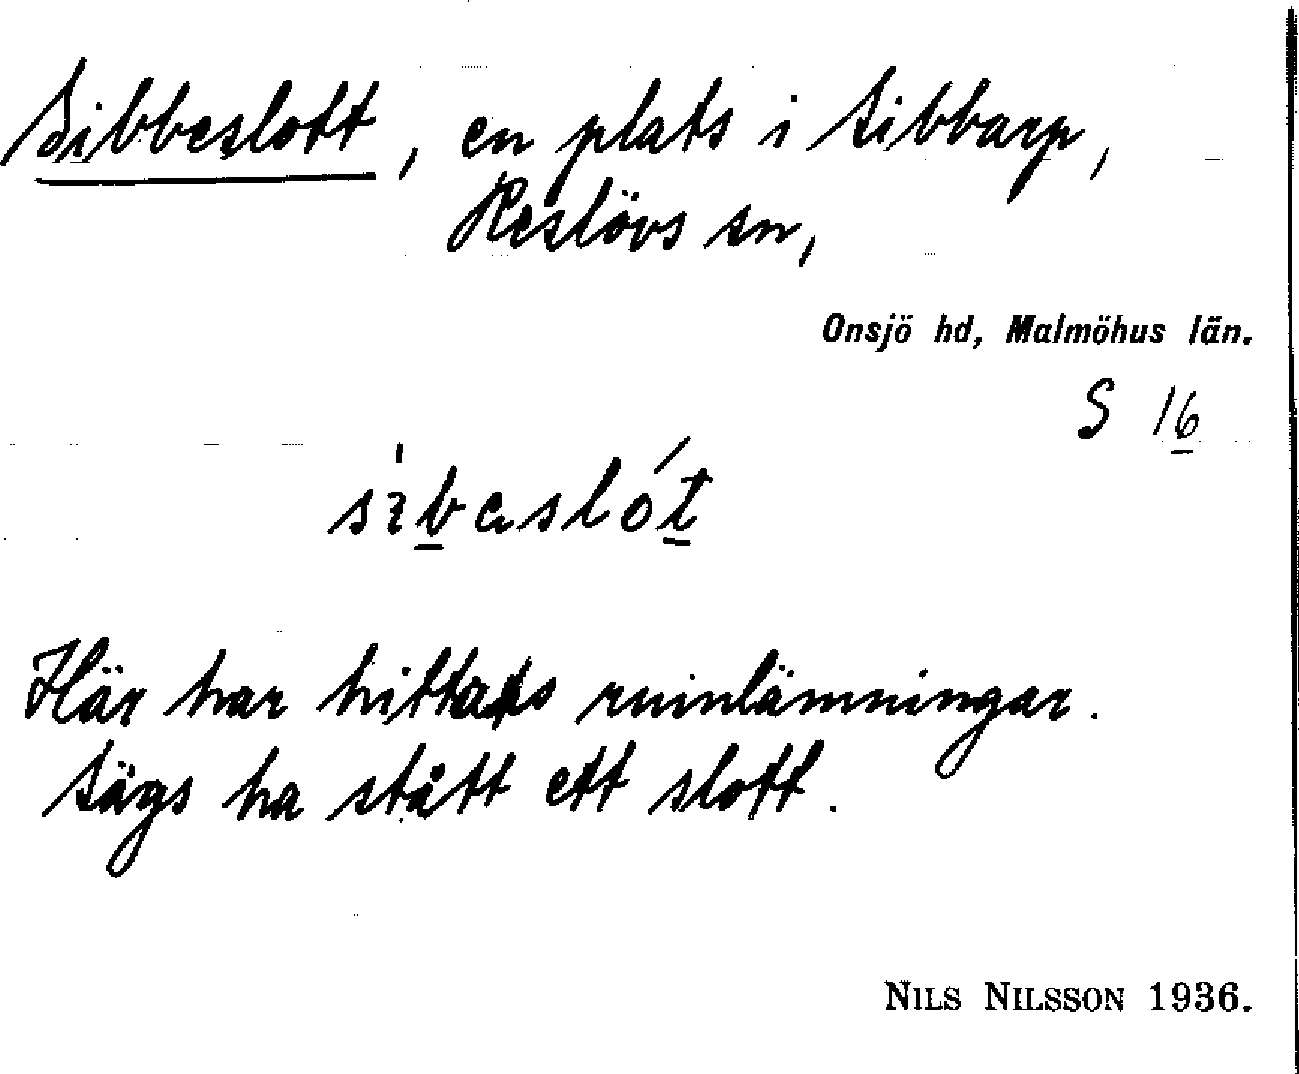 Sibbeslott, en plats i Sibbarp,
Reslövs sn,
Onsjö hd, Malmöhus län.
S 16
Här har hittats ruinlämningar.
Sägs ha stått ett slott.
NILS NILSSON 1936.